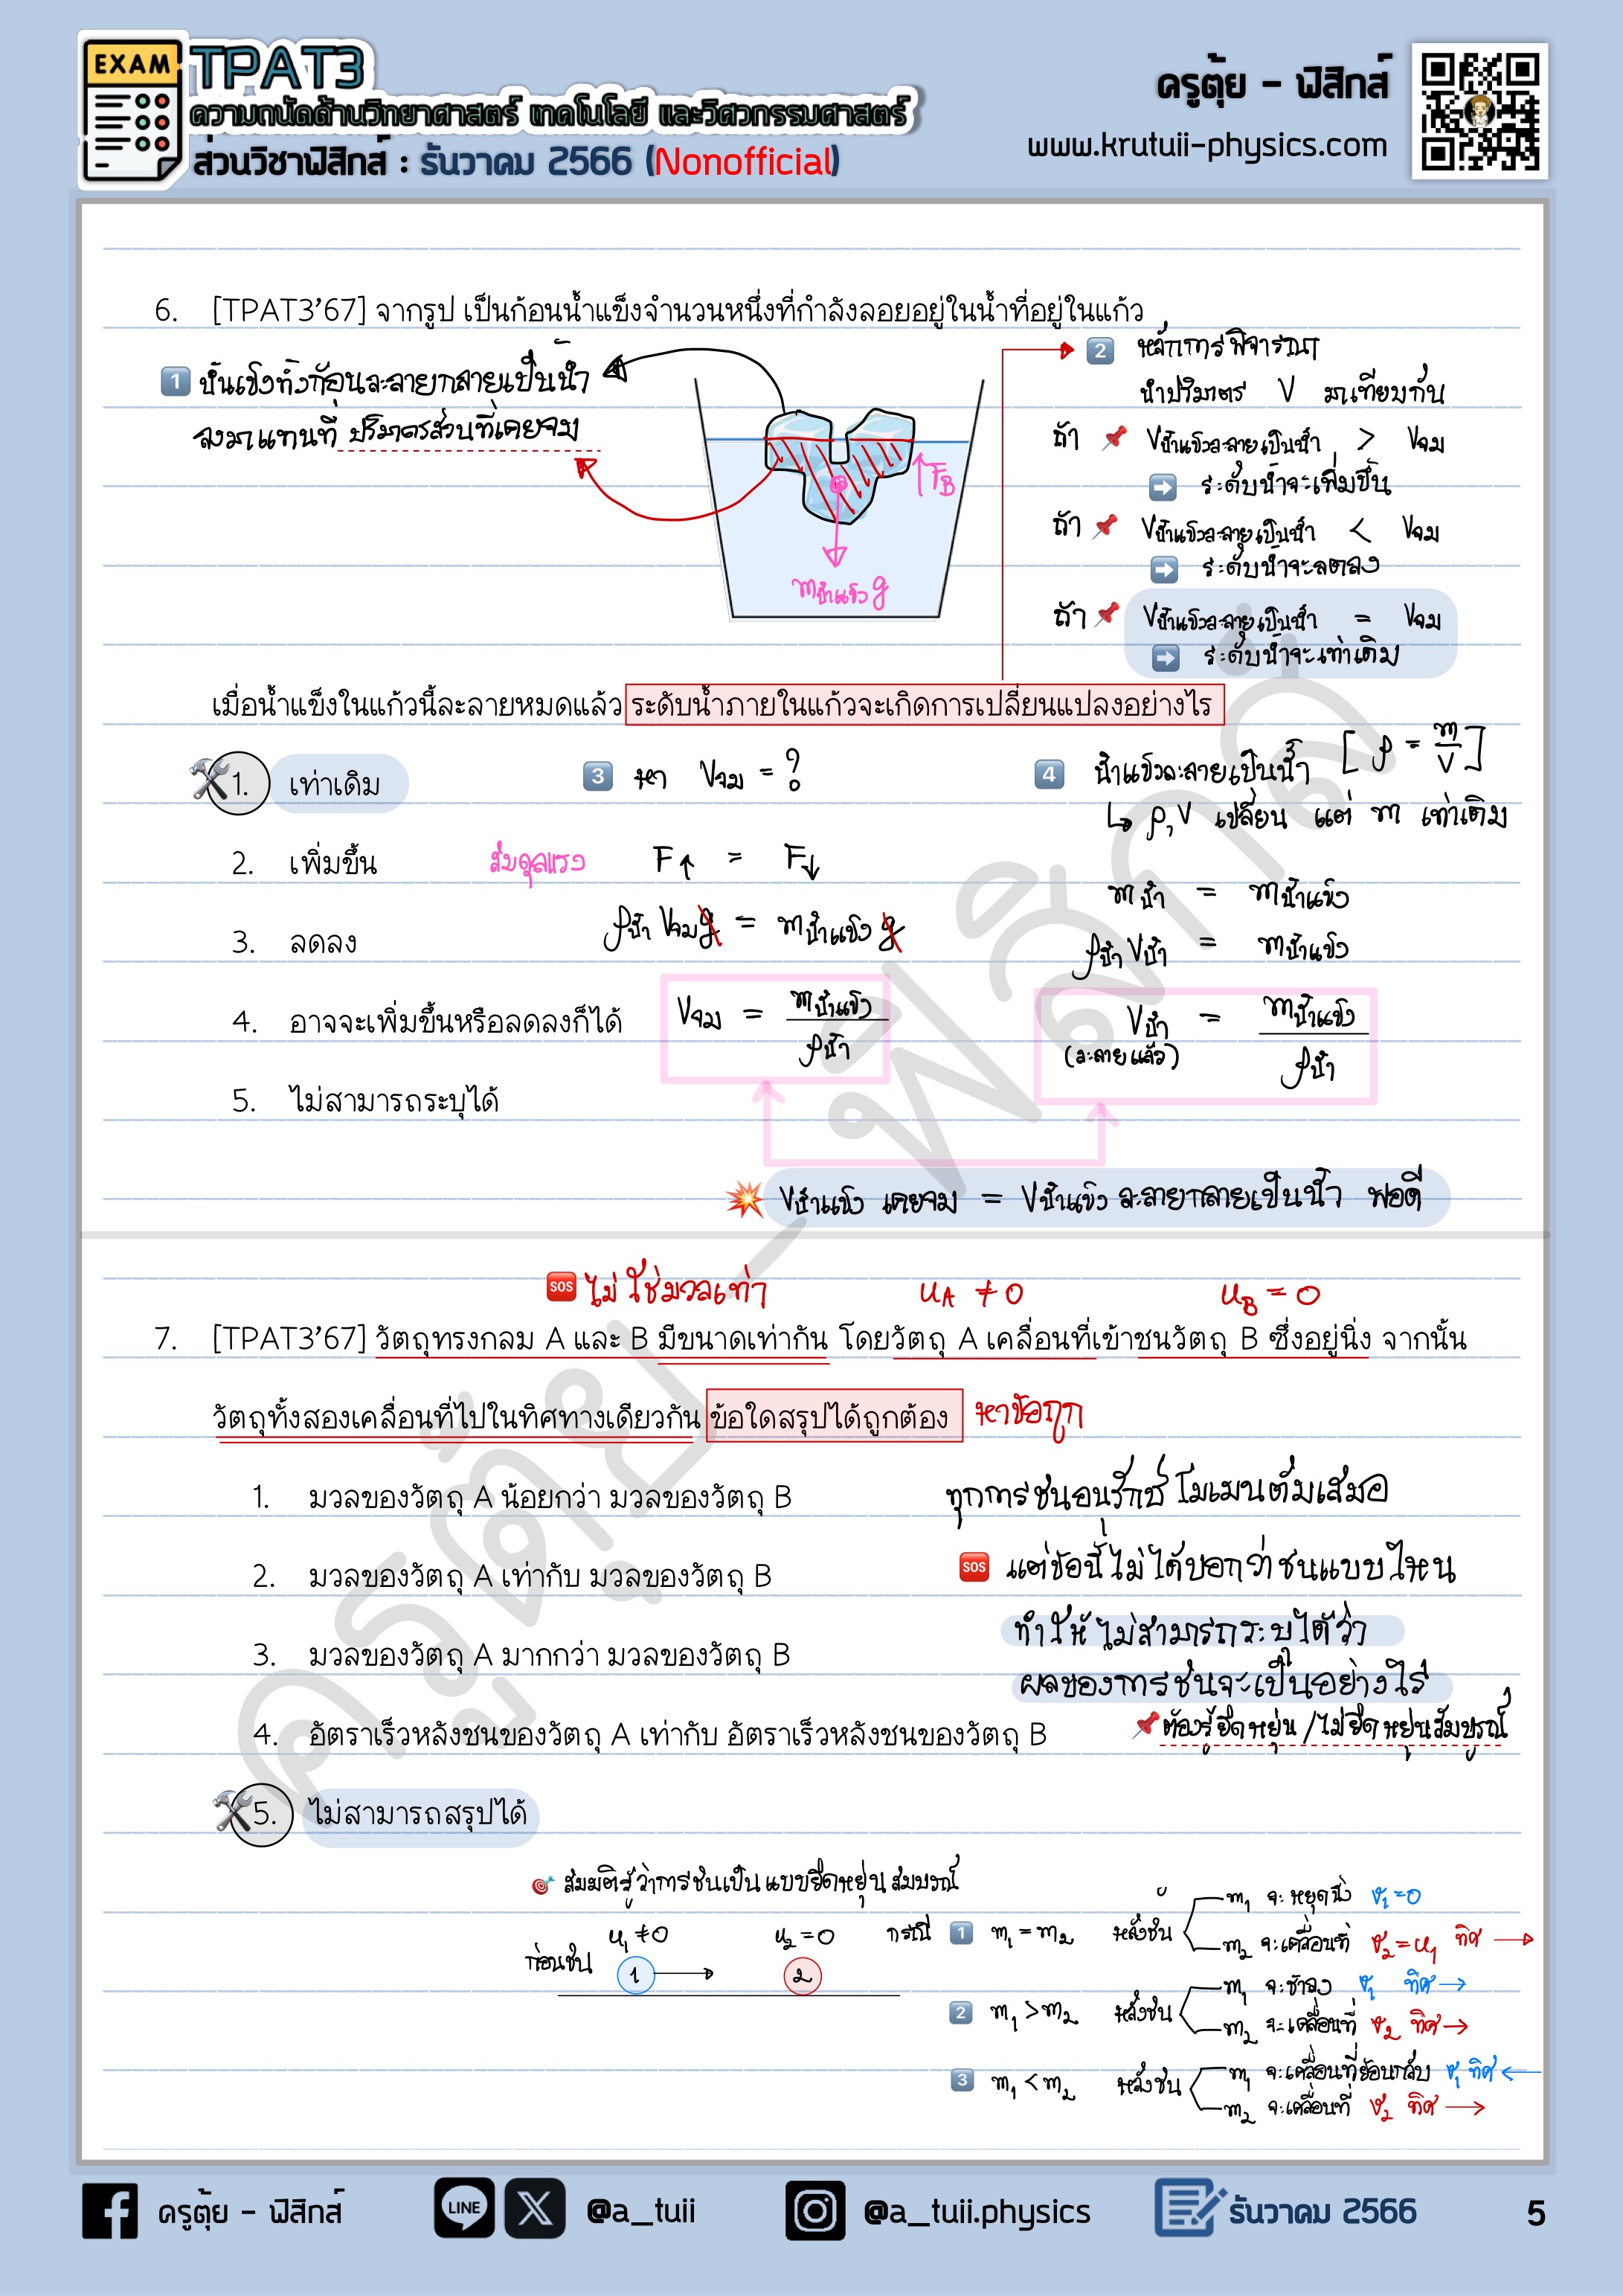 EXAM
TPAT3
ความถนัดด้านวิทยาศาสตร์ เทคโนโลยี และวิศวกรรมศาสตร์
ส่วนวิชาฟิสิกส์ : ธันวาคม 2566 (Nonofficial)
ครูตุ้ย - ฟิสิกส์
www.krutuii-physics.com
6. [TPAT3'67] จากรูป เป็นก้อนน้ำแข็งจำนวนหนึ่งที่กำลังลอยอยู่ในน้ำที่อยู่ในแก้ว
1 น้ำแข็งทั้งก้อนละลายกลายเป็นน้ำ
ลงมาแทนที่ ปริมาตรส่วนที่เคยจม
F_B
m น้ำแข็ง g
2 หลักการพิจารณา
นำปริมาตร V มาเทียบกัน
ถ้า 📌 V น้ำแข็งละลายเป็นน้ำ > V จม
➡ ระดับน้ำจะเพิ่มขึ้น
ถ้า 📌 V น้ำแข็งละลายเป็นน้ำ < V จม
➡ ระดับน้ำจะลดลง
ถ้า 📌 V น้ำแข็งละลายเป็นน้ำ = V จม
➡ ระดับน้ำจะเท่าเดิม
เมื่อน้ำแข็งในแก้วนี้ละลายหมดแล้ว ระดับน้ำภายในแก้วจะเกิดการเปลี่ยนแปลงอย่างไร
1. เท่าเดิม
2. เพิ่มขึ้น
3. ลดลง
4. อาจจะเพิ่มขึ้นหรือลดลงก็ได้
5. ไม่สามารถระบุได้
3 หา V จม = ?
สมดุลแรง F↑ = F↓
ρ น้ำ V จม g = m น้ำแข็ง g
V จม = m น้ำแข็ง / ρ น้ำ
4 น้ำแข็งละลายเป็นน้ำ [ρ = m/V]
↳ ρ, V เปลี่ยน แต่ m เท่าเดิม
m น้ำ = m น้ำแข็ง
ρ น้ำ V น้ำ = m น้ำแข็ง
V น้ำ (ละลายแล้ว) = m น้ำแข็ง / ρ น้ำ
💥 V น้ำแข็ง เคยจม = V น้ำแข็ง ละลายกลายเป็นน้ำ พอดี
SOS ไม่ใช่มวลเท่า u_A ≠ 0 u_B = 0
7. [TPAT3'67] วัตถุทรงกลม A และ B มีขนาดเท่ากัน โดยวัตถุ A เคลื่อนที่เข้าชนวัตถุ B ซึ่งอยู่นิ่ง จากนั้น
วัตถุทั้งสองเคลื่อนที่ไปในทิศทางเดียวกัน ข้อใดสรุปได้ถูกต้อง หาข้อถูก
1. มวลของวัตถุ A น้อยกว่า มวลของวัตถุ B
2. มวลของวัตถุ A เท่ากับ มวลของวัตถุ B
3. มวลของวัตถุ A มากกว่า มวลของวัตถุ B
4. อัตราเร็วหลังชนของวัตถุ A เท่ากับ อัตราเร็วหลังชนของวัตถุ B
5. ไม่สามารถสรุปได้
ทุกการชนอนุรักษ์โมเมนตัมเสมอ
SOS แต่ข้อนี้ไม่ได้บอกว่าชนแบบไหน
ทำให้ไม่สามารถระบุได้ว่า
ผลของการชนจะเป็นอย่างไร
📌 ต้องรู้ยืดหยุ่น/ไม่ยืดหยุ่นสมบูรณ์
🎯 สมมติรู้ว่าการชนเป็นแบบยืดหยุ่นสมบูรณ์
ก่อนชน u₁ ≠ 0 u₂ = 0
1 2
กรณี 1 m₁ = m₂ หลังชน m₁ จะหยุดนิ่ง v₁ = 0
m₂ จะเคลื่อนที่ v₂ = u₁ ทิศ →
2 m₁ > m₂ หลังชน m₁ จะช้าลง v₁ ทิศ →
m₂ จะเคลื่อนที่ v₂ ทิศ →
3 m₁ < m₂ หลังชน m₁ จะเคลื่อนที่ย้อนกลับ v₁ ทิศ ←
m₂ จะเคลื่อนที่ v₂ ทิศ →
ครูตุ้ย - ฟิสิกส์
ครูตุ้ย - ฟิสิกส์
LINE X @a_tuii
@a_tuii.physics
ธันวาคม 2566
5